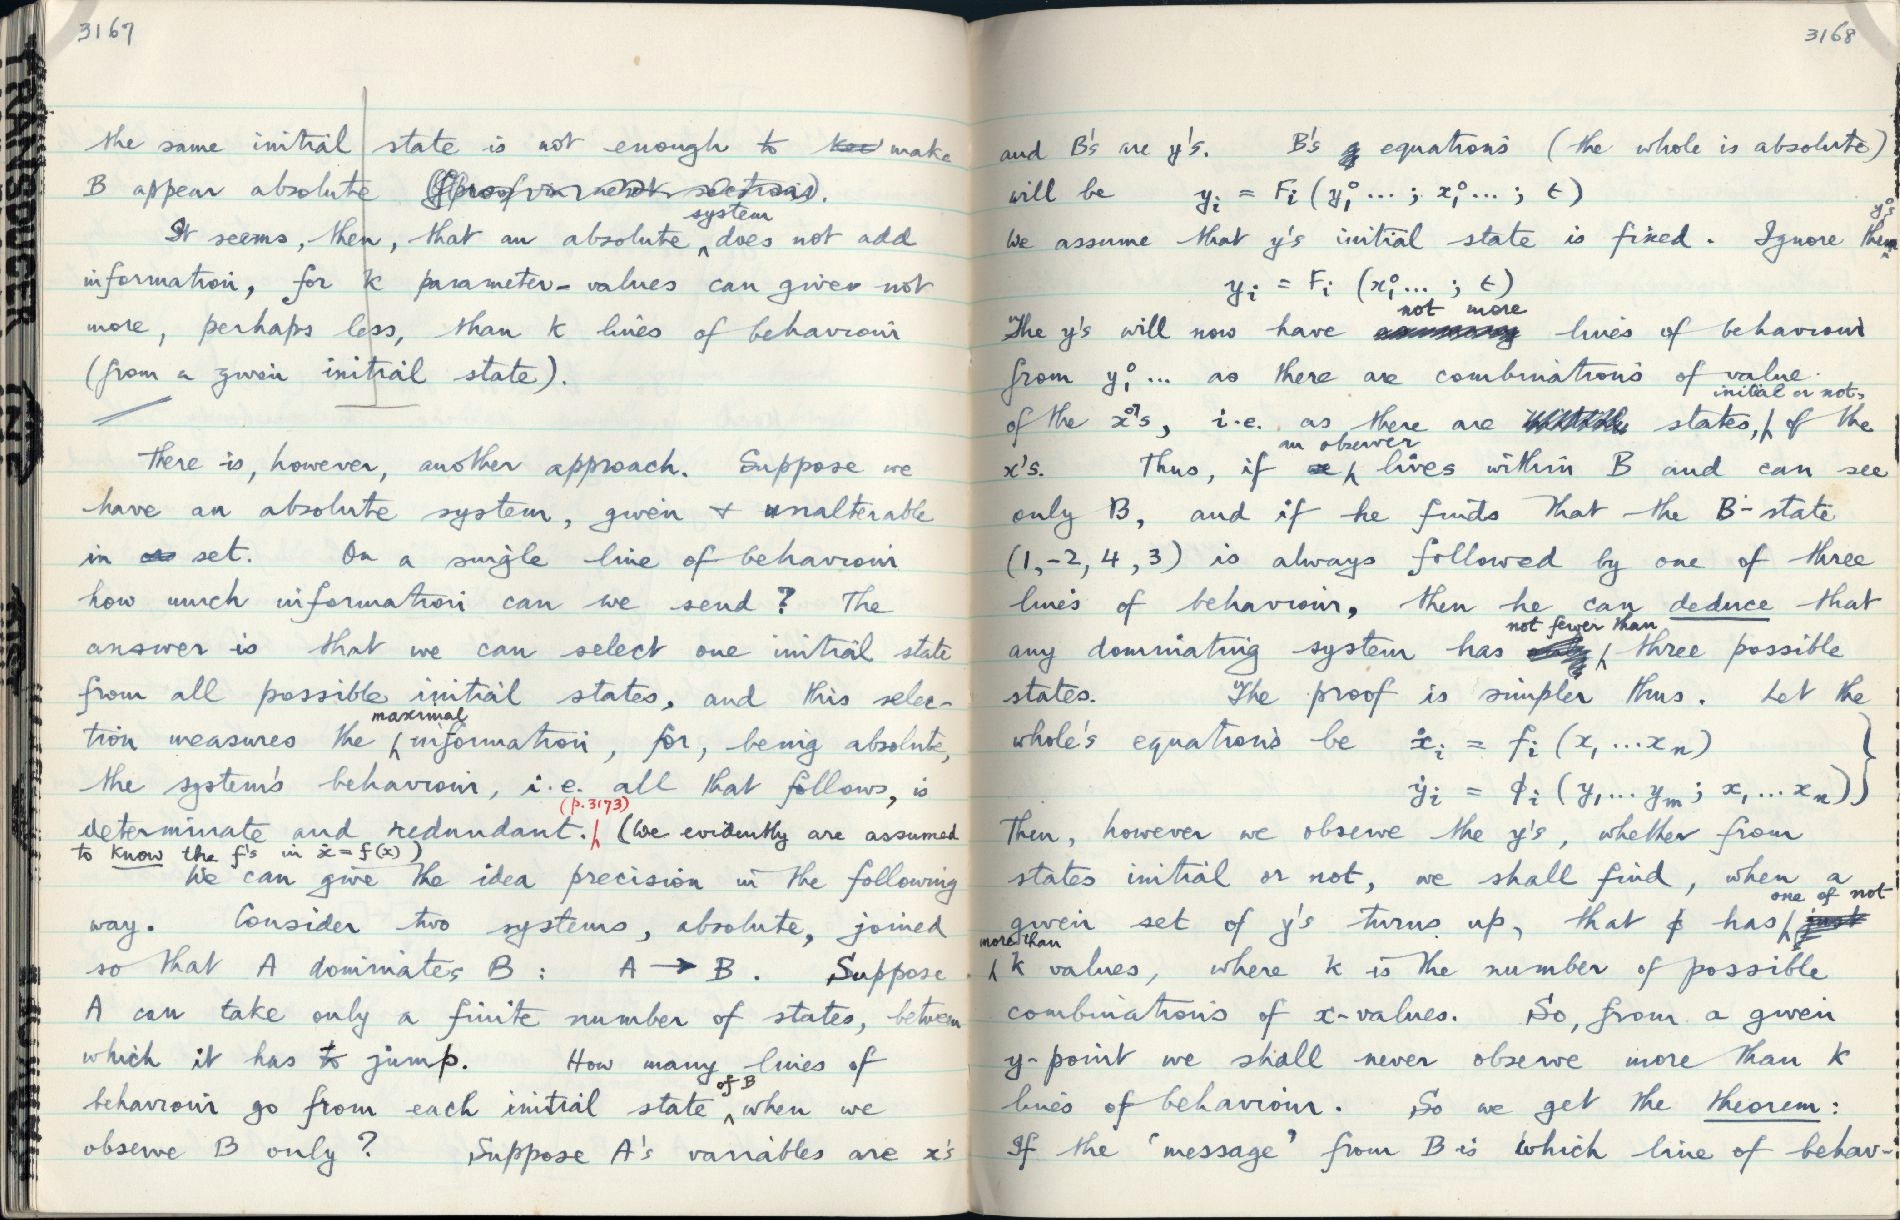 3167
the same initial state is not enough to make
B appear absolute
It seems, then, that an absolute system does not add
information, for k parameter-values can give not
more, perhaps less, than k lines of behaviour
(from a given initial state).
There is, however, another approach. Suppose we
have an absolute system, given & unalterable
in set. On a single line of behaviour
how much information can we send? The
answer is that we can select one initial state
from all possible initial states, and this selec-
tion measures the maximal information, for, being absolute,
the system's behaviour, i.e. all that follows, is
determinate and redundant. (p.3173) (We evidently are assumed
to know the f's in ẋ = f(x))
We can give the idea precision in the following
way. Consider two systems, absolute, joined
so that A dominates B: A → B. Suppose
A can take only a finite number of states, between
which it has to jump. How many lines of
behaviour go from each initial state of B when we
observe B only? Suppose A's variables are x's
3168
and B's are y's. B's equations (the whole is absolute)
will be yᵢ = Fᵢ (y₁° ... ; x₁° ... ; t)
We assume that y's initial state is fixed. Ignore them y°'s
yᵢ = Fᵢ (x₁° ... ; t)
The y's will now have not more lines of behaviour
from y₁° ... as there are combinations of value
of the x°'s, i.e. as there are states, initial or not, of the
x's. Thus, if an observer lives within B and can see
only B, and if he finds that the B-state
(1, -2, 4, 3) is always followed by one of three
lines of behaviour, then he can deduce that
any dominating system has not fewer than three possible
states. The proof is simpler thus. Let the
whole's equations be ẋᵢ = fᵢ (x₁ ... xₙ) }
ẏᵢ = ϕᵢ (y₁ ... yₘ ; x₁ ... xₙ) }
Then, however we observe the y's, whether from
states initial or not, we shall find, when a
given set of y's turns up, that ϕ has one of not
more than k values, where k is the number of possible
combinations of x-values. So, from a given
y-point we shall never observe more than k
lines of behaviour. So we get the theorem:
If the 'message' from B is which line of behav-
TRANSDUCER